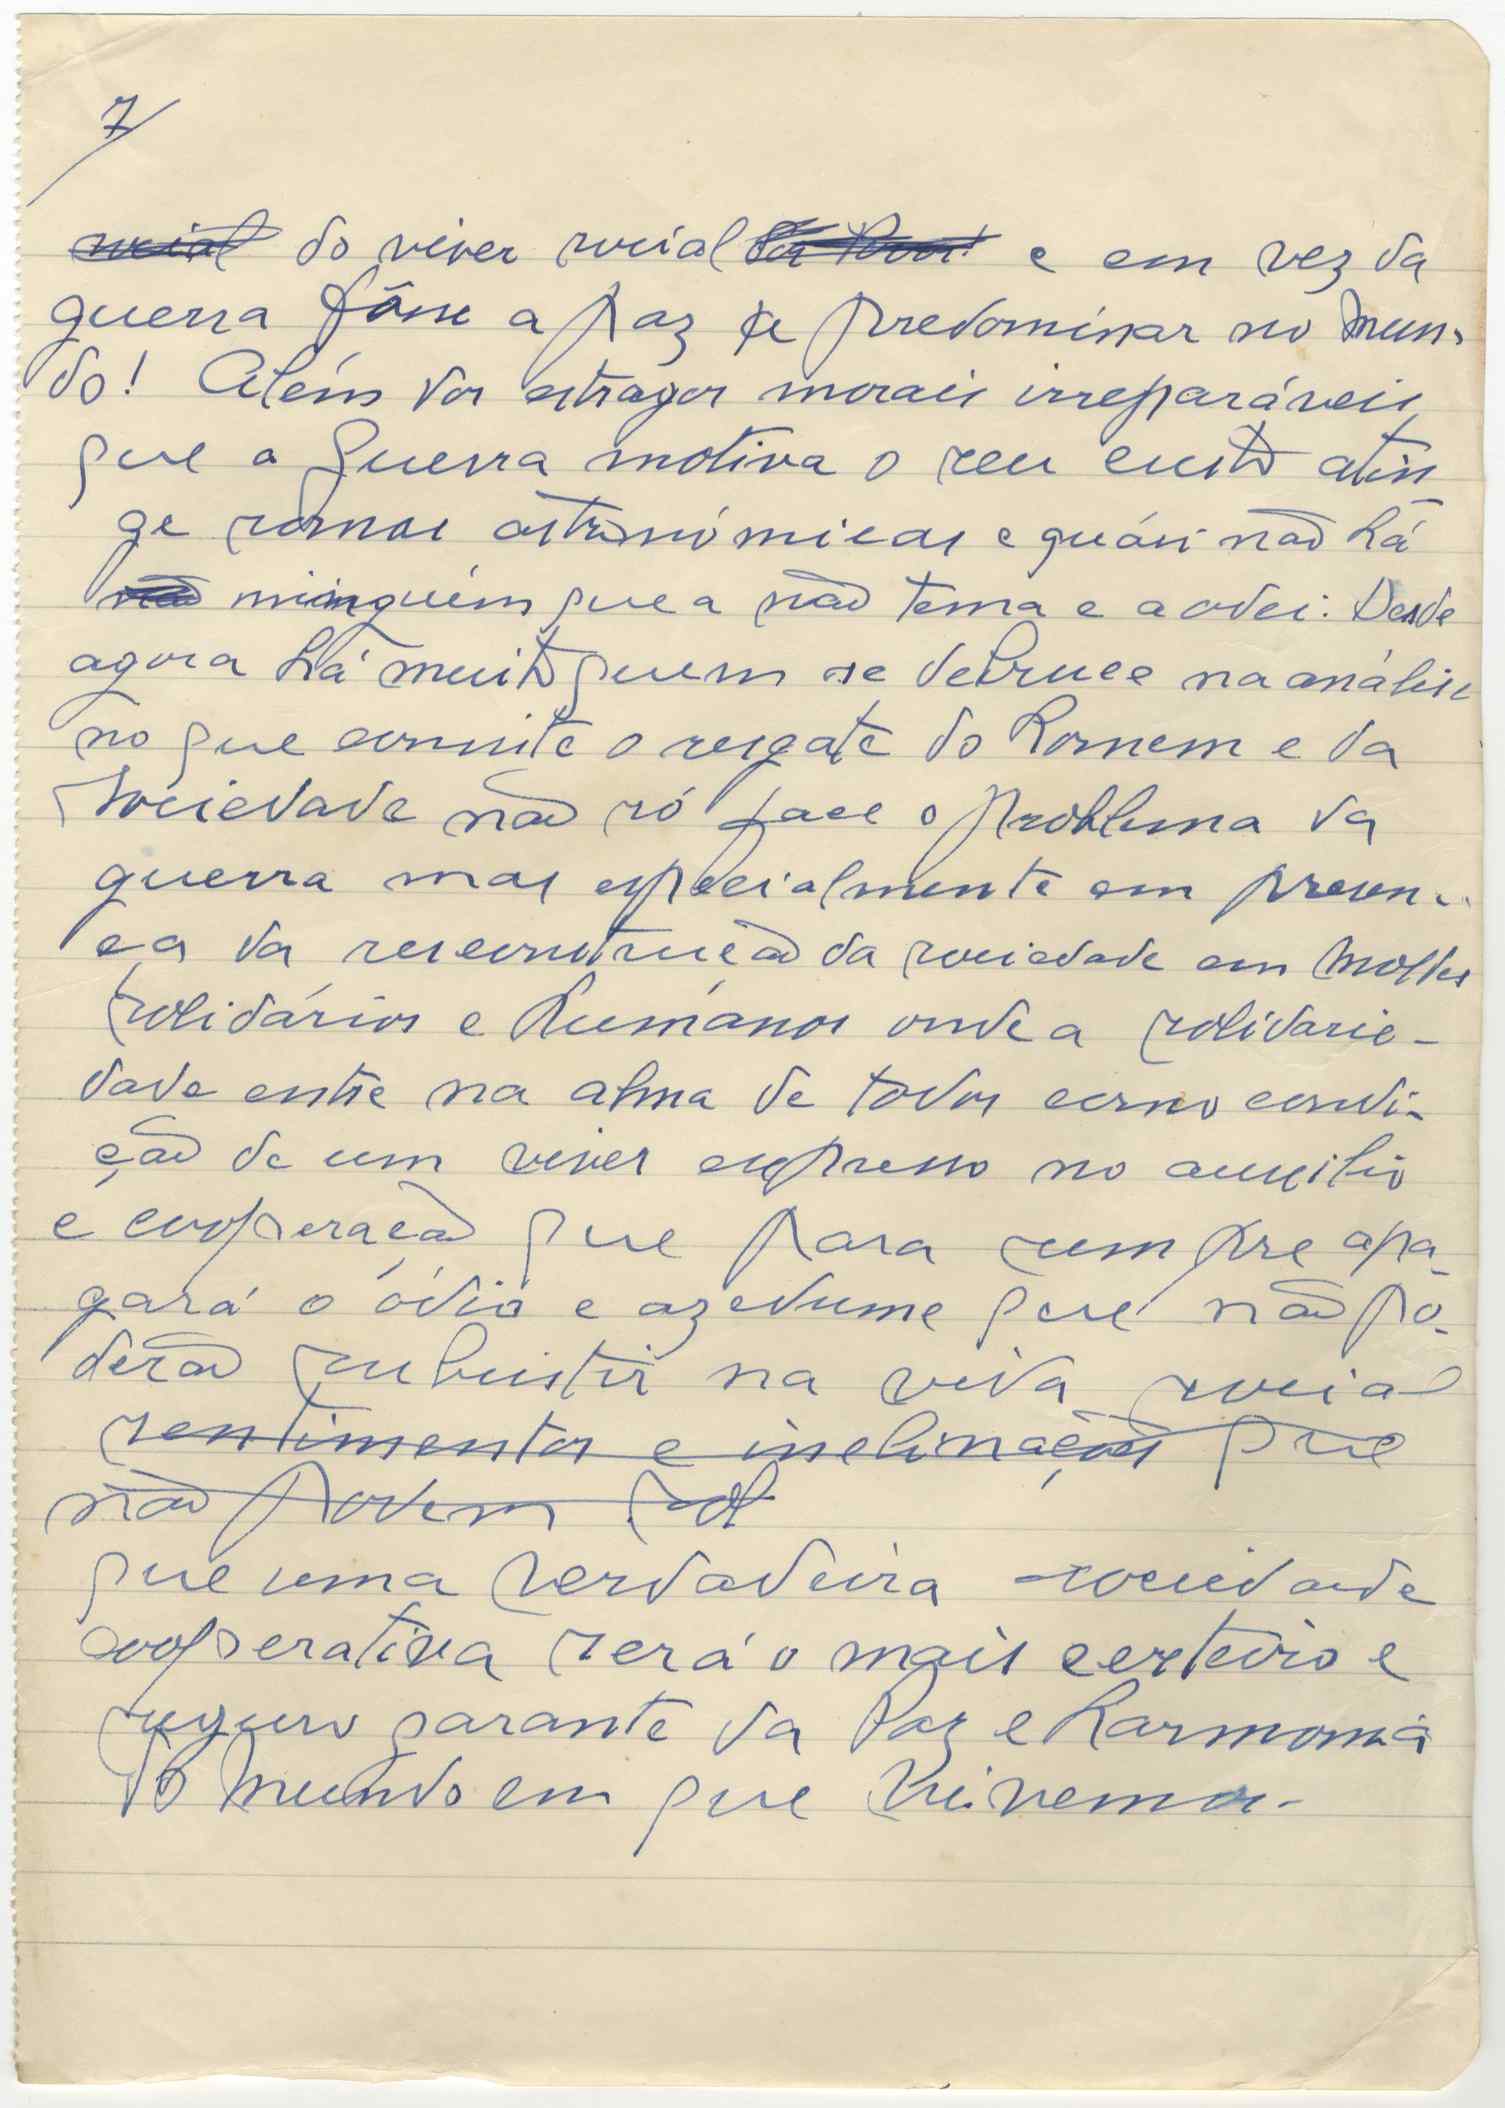 7/
social do viver social dos Povos! e em vez da
guerra fôsse a paz a predominar no Mun-
do! Além dos estragos morais irreparáveis
que a Guerra motiva o seu custo atin
ge somas astronómicas e quási não há
não ninguém que a não tema e a odei. Desde
agora há muito quem se debruce na análise
no que consiste o resgate do Homem e da
Sociedade não só face o problema da
guerra mas especialmente em presen-
ça da reconstrução da sociedade em moldes
solidários e humanos onde a solidarie-
dade entre na alma de todos como condi-
ção de um viver expresso no auxilio
e cooperação que para sempre apa-
gará o ódio e azedume que não po-
derão subsistir na vida social
sentimentos e inclinações que
não podem
que uma verdadeira sociedade
cooperativa será o mais certeiro e
seguro garante da Paz e Harmonia
do Mundo em que Vivemos-